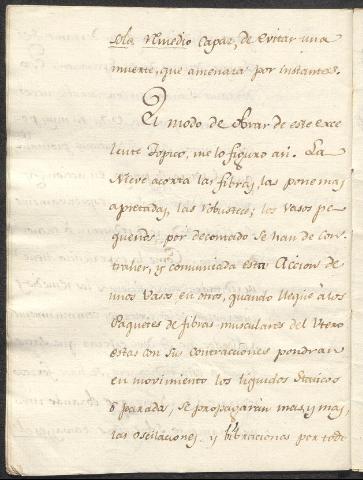 sola remedio capaz, de evitar una
muerte, que amenaza por instantes.
El modo de Obrar de este exce
lente Topico, me lo figuro asi. La
Nieve acorta las fibras, las pone mas
apretadas, las robustece; los vasos pe
queños, por decontado se han de con
traher, y comunicada esta Accion de
unos vasos, en otros, quando llegue à los
Paquetes de fibras musculares del Utero
estas con sus contracciones pondran
en movimiento los liquidos Staticos
ò parados, se propagaran mas y mas,
las oscilaciones y vibraciones por todo